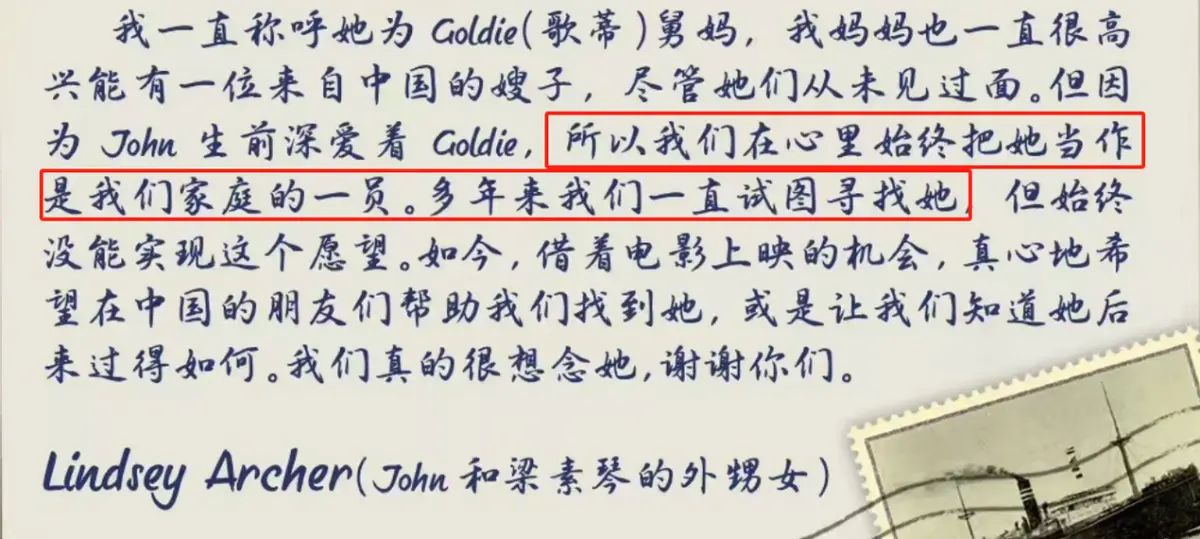 我一直称呼她为 Goldie(歌蒂)舅妈，我妈妈也一直很高
兴能有一位来自中国的嫂子，尽管她们从未见过面。但因
为 John 生前深爱着 Goldie，所以我们在心里始终把她当作
是我们家庭的一员。多年来我们一直试图寻找她，但始终
没能实现这个愿望。如今，借着电影上映的机会，真心地希
望在中国的朋友们帮助我们找到她，或是让我们知道她后
来过得如何。我们真的很想念她，谢谢你们。
Lindsey Archer(John 和梁素琴的外甥女)